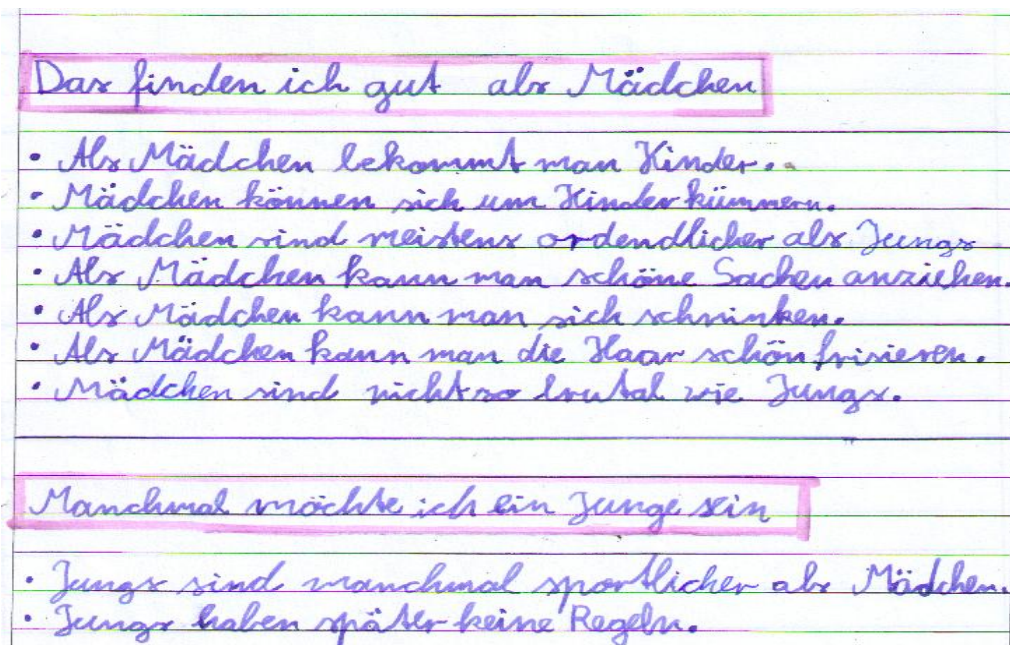 Das finden ich gut als Mädchen
• Als Mädchen bekommt man Kinder.
• Mädchen können sich um Kinder kümmern.
• Mädchen sind meistens ordendlicher als Jungs
• Als Mädchen kann man schöne Sachen anziehen.
• Als Mädchen kann man sich schminken.
• Als Mädchen kann man die Haar schön frisieren.
• Mädchen sind nicht so brutal wie Jungs.
Manchmal möchte ich ein Junge sein
• Jungs sind manchmal sportlicher als Mädchen.
• Jungs haben später keine Regeln.